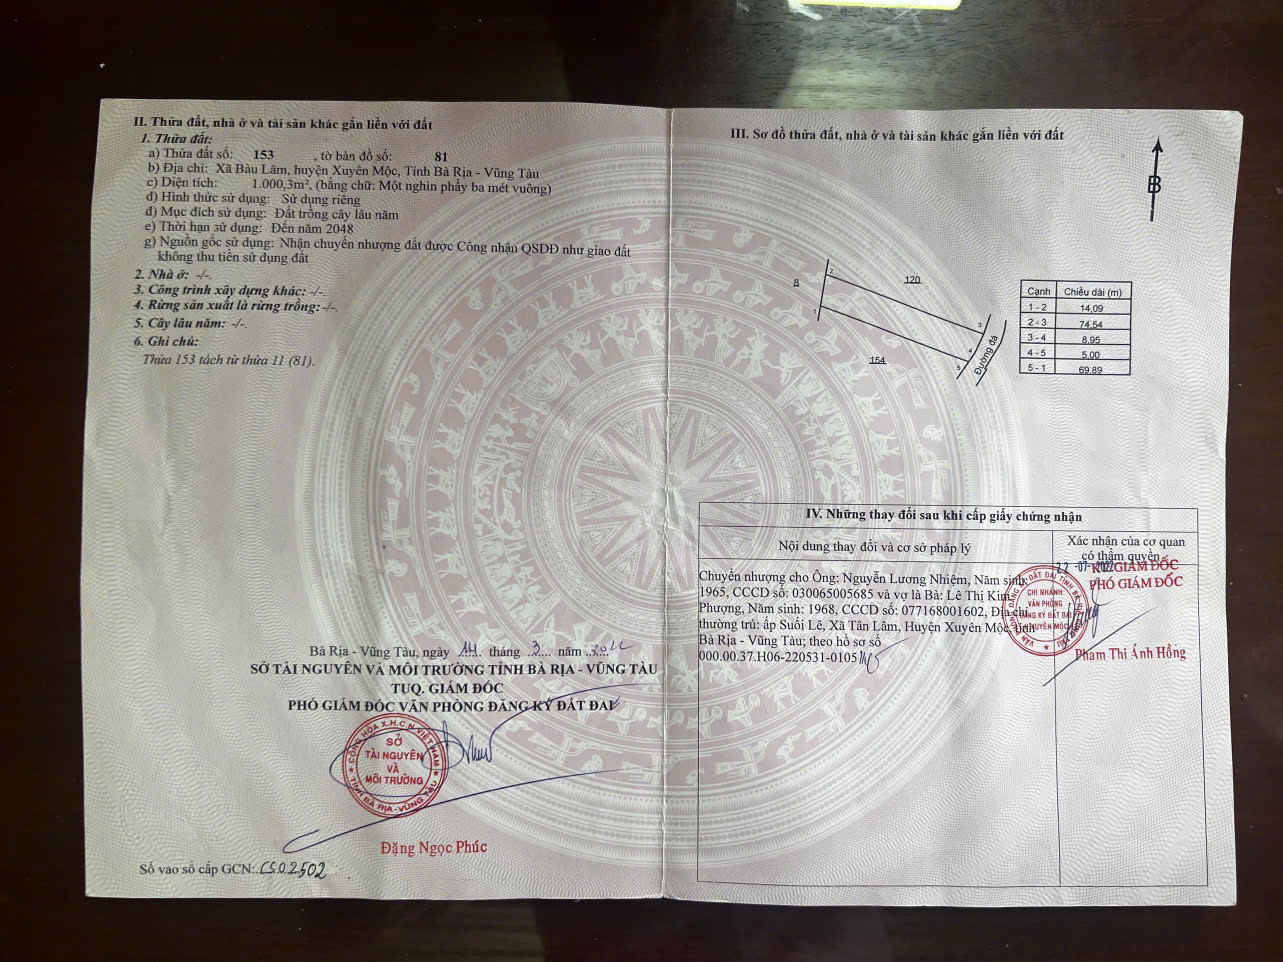 II. Thửa đất, nhà ở và tài sản khác gắn liền với đất
1. Thửa đất:
a) Thửa đất số: 153 , tờ bản đồ số: 81
b) Địa chỉ: Xã Bàu Lâm, huyện Xuyên Mộc, Tỉnh Bà Rịa - Vũng Tàu
c) Diện tích: 1.000,3m², (bằng chữ: Một nghìn phẩy ba mét vuông)
d) Hình thức sử dụng: Sử dụng riêng
đ) Mục đích sử dụng: Đất trồng cây lâu năm
e) Thời hạn sử dụng: Đến năm 2048
g) Nguồn gốc sử dụng: Nhận chuyển nhượng đất được Công nhận QSDĐ như giao đất
không thu tiền sử dụng đất
2. Nhà ở: -/-.
3. Công trình xây dựng khác: -/-.
4. Rừng sản xuất là rừng trồng: -/-.
5. Cây lâu năm: -/-.
6. Ghi chú:
Thửa 153 tách từ thửa 11 (81).
Bà Rịa - Vũng Tàu, ngày 14 tháng 3 năm 2022
SỞ TÀI NGUYÊN VÀ MÔI TRƯỜNG TỈNH BÀ RỊA - VŨNG TÀU
TUQ. GIÁM ĐỐC
PHÓ GIÁM ĐỐC VĂN PHÒNG ĐĂNG KÝ ĐẤT ĐAI
CỘNG HÒA X.H.C.N VIỆT NAM
SỞ
TÀI NGUYÊN
VÀ
MÔI TRƯỜNG
TỈNH BÀ RỊA - VŨNG TÀU
Đặng Ngọc Phúc
Số vào sổ cấp GCN: CS02502
III. Sơ đồ thửa đất, nhà ở và tài sản khác gắn liền với đất
B
8
2
120
1
3
4
154
5
Đường đá
Cạnh Chiều dài (m)
1 - 2 14,09
2 - 3 74,54
3 - 4 8,95
4 - 5 5,00
5 - 1 69,89
IV. Những thay đổi sau khi cấp giấy chứng nhận
Nội dung thay đổi và cơ sở pháp lý
Xác nhận của cơ quan
có thẩm quyền
Chuyển nhượng cho Ông: Nguyễn Lương Nhiệm, Năm sinh:
1965, CCCD số: 030065005685 và vợ là Bà: Lê Thị Kim
Phượng, Năm sinh: 1968, CCCD số: 077168001602, Địa chỉ
thường trú: ấp Suối Lê, Xã Tân Lâm, Huyện Xuyên Mộc, tỉnh
Bà Rịa - Vũng Tàu; theo hồ sơ số
000.00.37.H06-220531-0105
-07-2022
KT.GIÁM ĐỐC
PHÓ GIÁM ĐỐC
CHI NHÁNH
VĂN PHÒNG
ĐĂNG KÝ ĐẤT ĐAI
H.XUYÊN MỘC
Phạm Thị Ánh Hồng